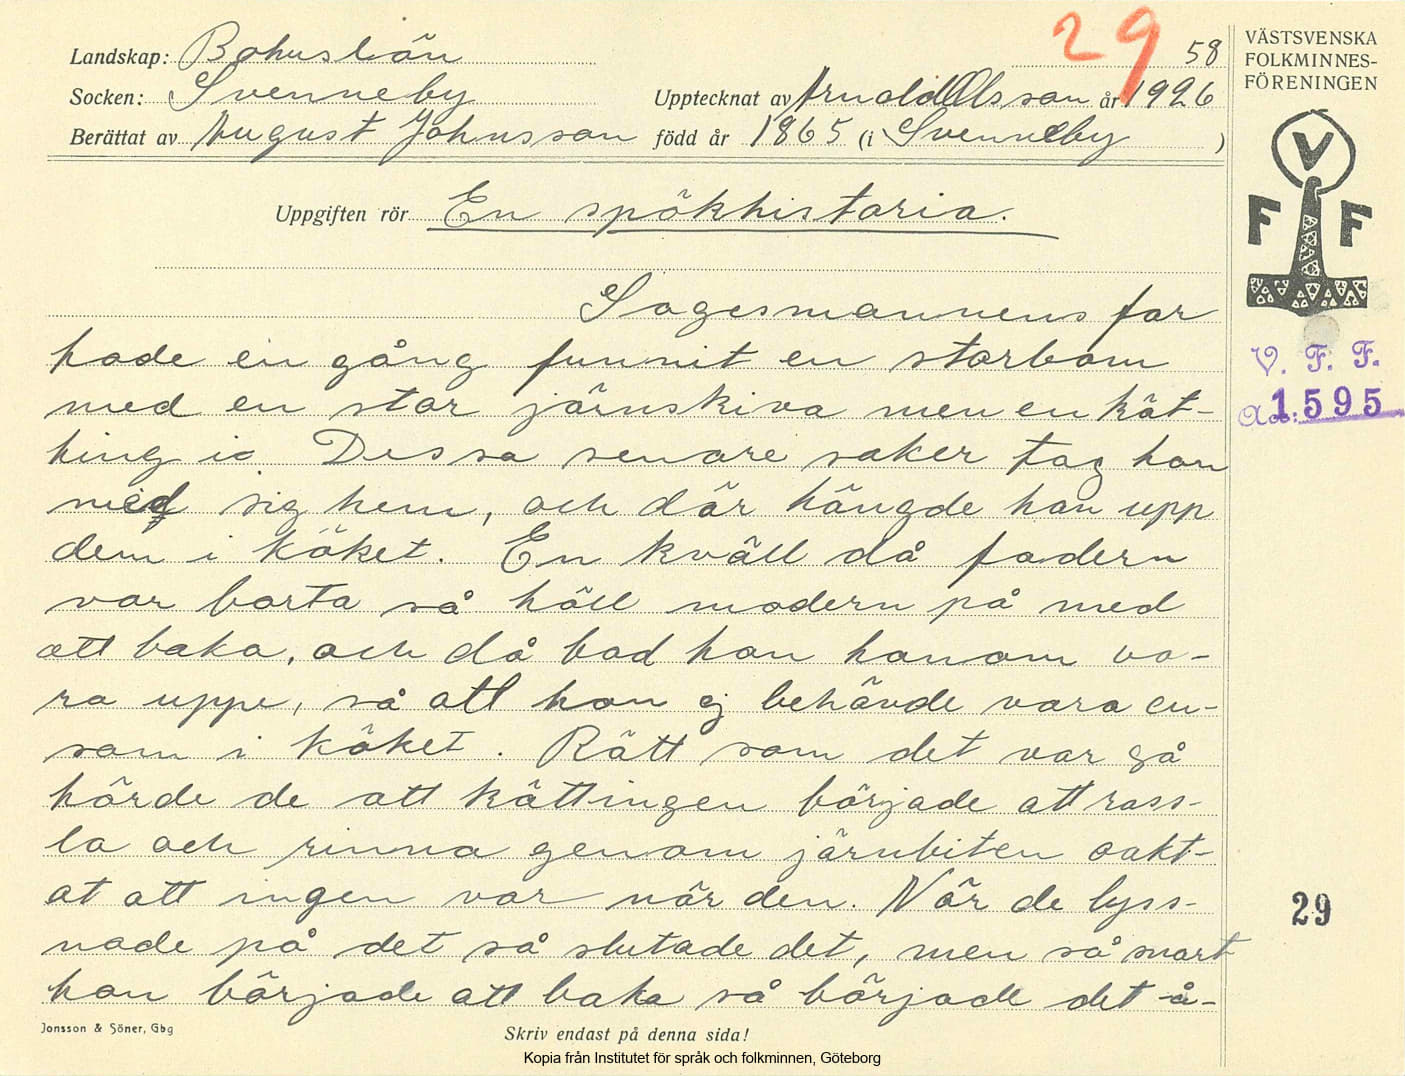 29
58
Landskap: Bohuslän
Socken: Svenneby
Upptecknat av Arnold Olsson år 1926
Berättat av August Johnsson född år 1865 (i Svenneby )
Uppgiften rör En spökhistoria.
Sagesmannens far
hade en gång funnit en storbom
med en stor järnskiva men en kät-
ting i. Dessa senare saker tog han
med sig hem, och där hängde han upp
dem i köket. En kväll då fadern
var borta så höll modern på med
att baka, och då bad hon honom va-
ra uppe, så att hon ej behövde vara en-
sam i köket. Rätt som det var så
hörde de att kättingen började att rass-
la och rinna genom järnbiten oakt-
at att ingen var när den. När de lyss-
nade på det så slutade det, men så snart
hon började att baka så började det å-
Jonsson & Söner, Gbg
Skriv endast på denna sida!
Kopia från Institutet för språk och folkminnen, Göteborg
VÄSTSVENSKA
FOLKMINNES-
FÖRENINGEN
V
F F
V. F. F.
1595
29